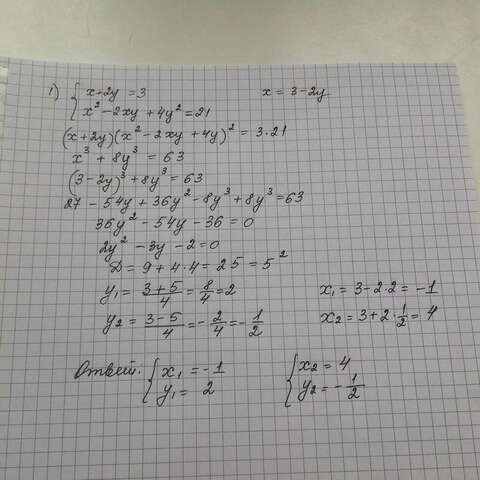 1) { x+2y = 3        x = 3-2y
x² - 2xy + 4y² = 21
(x+2y)(x² - 2xy + 4y)² = 3·21
x³ + 8y³ = 63
(3-2y)³ + 8y³ = 63
27 - 54y + 36y² - 8y³ + 8y³ = 63
36y² - 54y - 36 = 0
2y² - 3y - 2 = 0
D = 9 + 4·4 = 25 = 5²
y₁ = (3+5)/4 = 8/4 = 2        x₁ = 3-2·2 = -1
y₂ = (3-5)/4 = -2/4 = -1/2        x₂ = 3+2·1/2 = 4
Ответ. { x₁ = -1        { x₂ = 4
y₁ = 2        y₂ = -1/2